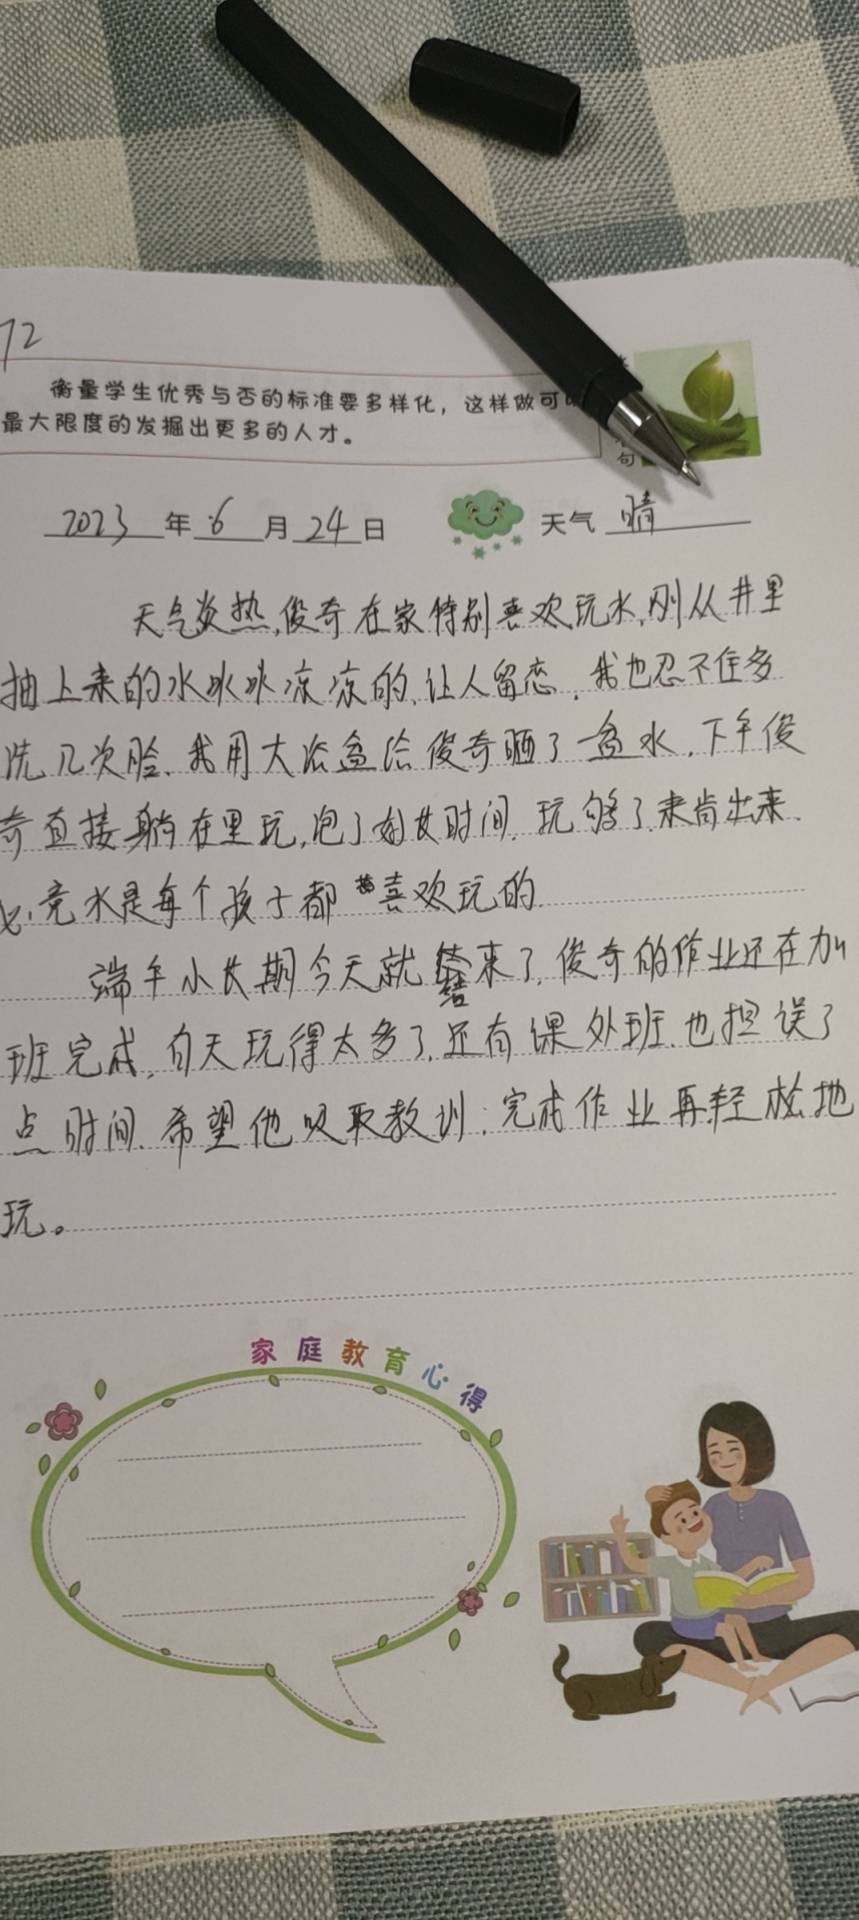 72
衡量学生优秀与否的标准要多样化，这样做可
最大限度的发掘出更多的人才。
句
2023年6月24日 天气 晴
天气炎热，俊奇在家特别喜欢玩水，刚从井里
抽上来的水冰冰凉凉的，让人留恋，我也忍不住多
洗几次脸、我用大浴盆给俊奇晒了一盆水，下午俊
奇直接躺在里玩，泡了好长时间，玩够了才肯出来、
竟水是每个孩子都喜欢玩的
端午小长期今天就结束了，俊奇的作业还在加
班完成，白天玩得太多了，还有课外班、也担误了
点时间、希望他吸取教训，完成作业再轻松地
玩。
家庭教育心得